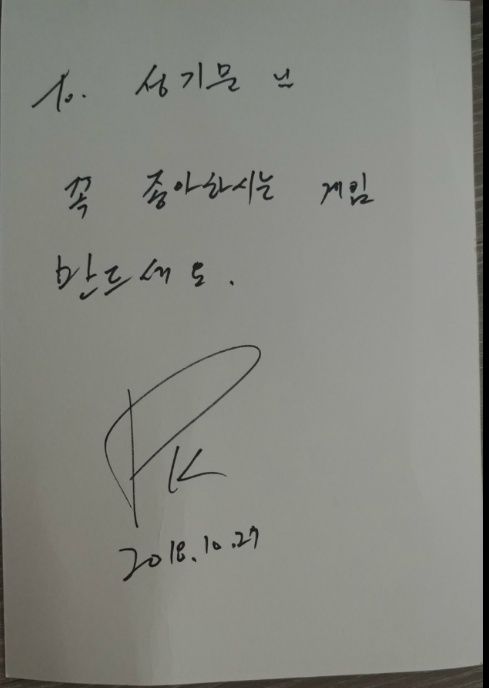 To. 성기문 님
꼭 좋아하시는 게임
만드세요.
PK
2018.10.27